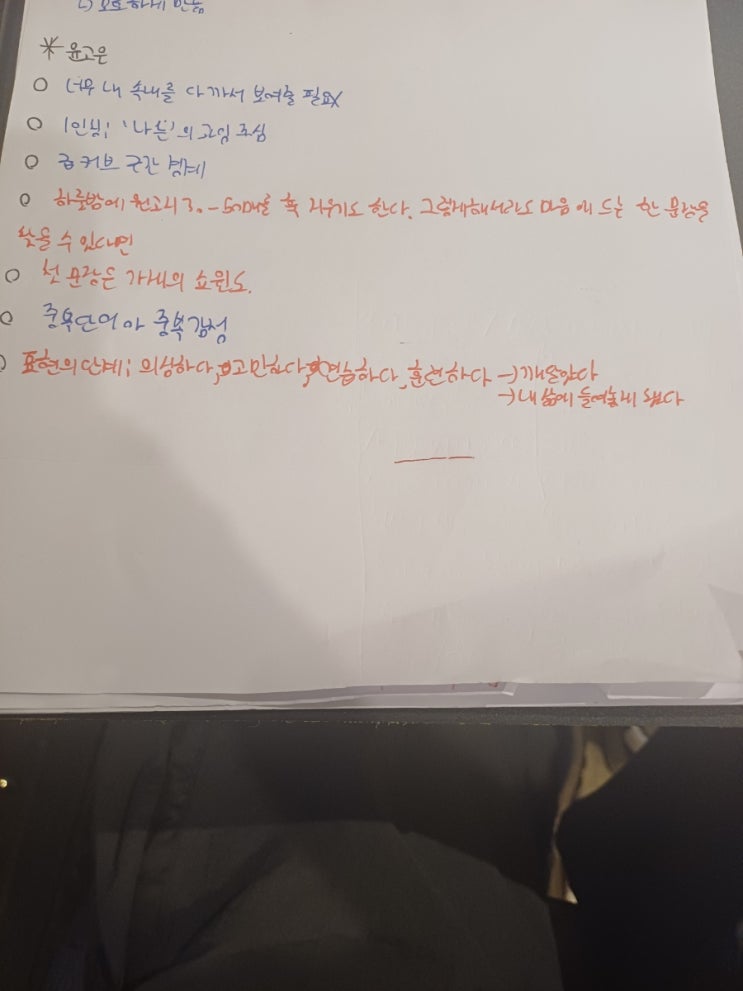 ↳ 모호하게 만듦
* 윤고은
○ 너무 내 속내를 다 까서 보여줄 필요X
○ 1인칭; '나는'의 고임 조심
○ 급커브 구간 경계
○ 하룻밤에 원고지 30-50매를 훅 지우기도 한다. 그렇게해서라도 마음에 드는 한 문장을
찾을 수 있다면
○ 첫 문장은 가게의 쇼윈도.
○ 중복단어 아 중복감정
○ 표현의 단계; 의심하다, 고민하다, 연습하다, 훈련하다 → 깨달았다
→ 내 삶에 들여놓게 됐다